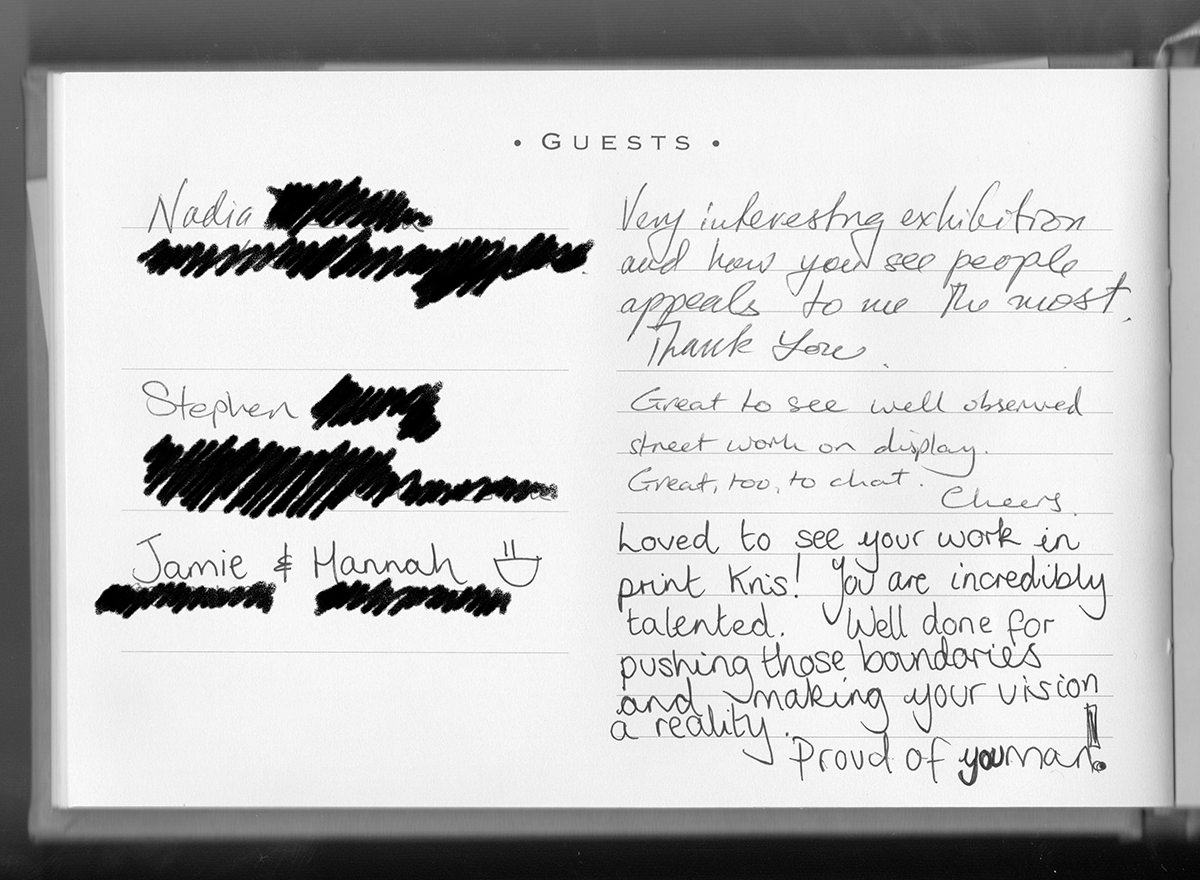 • GUESTS •
Nadia
Very interesting exhibition
and how you see people
appeals to me the most.
Thank You.
Stephen
Great to see well observed
street work on display.
Great, too, to chat.
Cheers.
Jamie & Hannah
Loved to see your work in
print Kris! You are incredibly
talented. Well done for
pushing those boundaries
and making your vision
a reality.
Proud of you man!